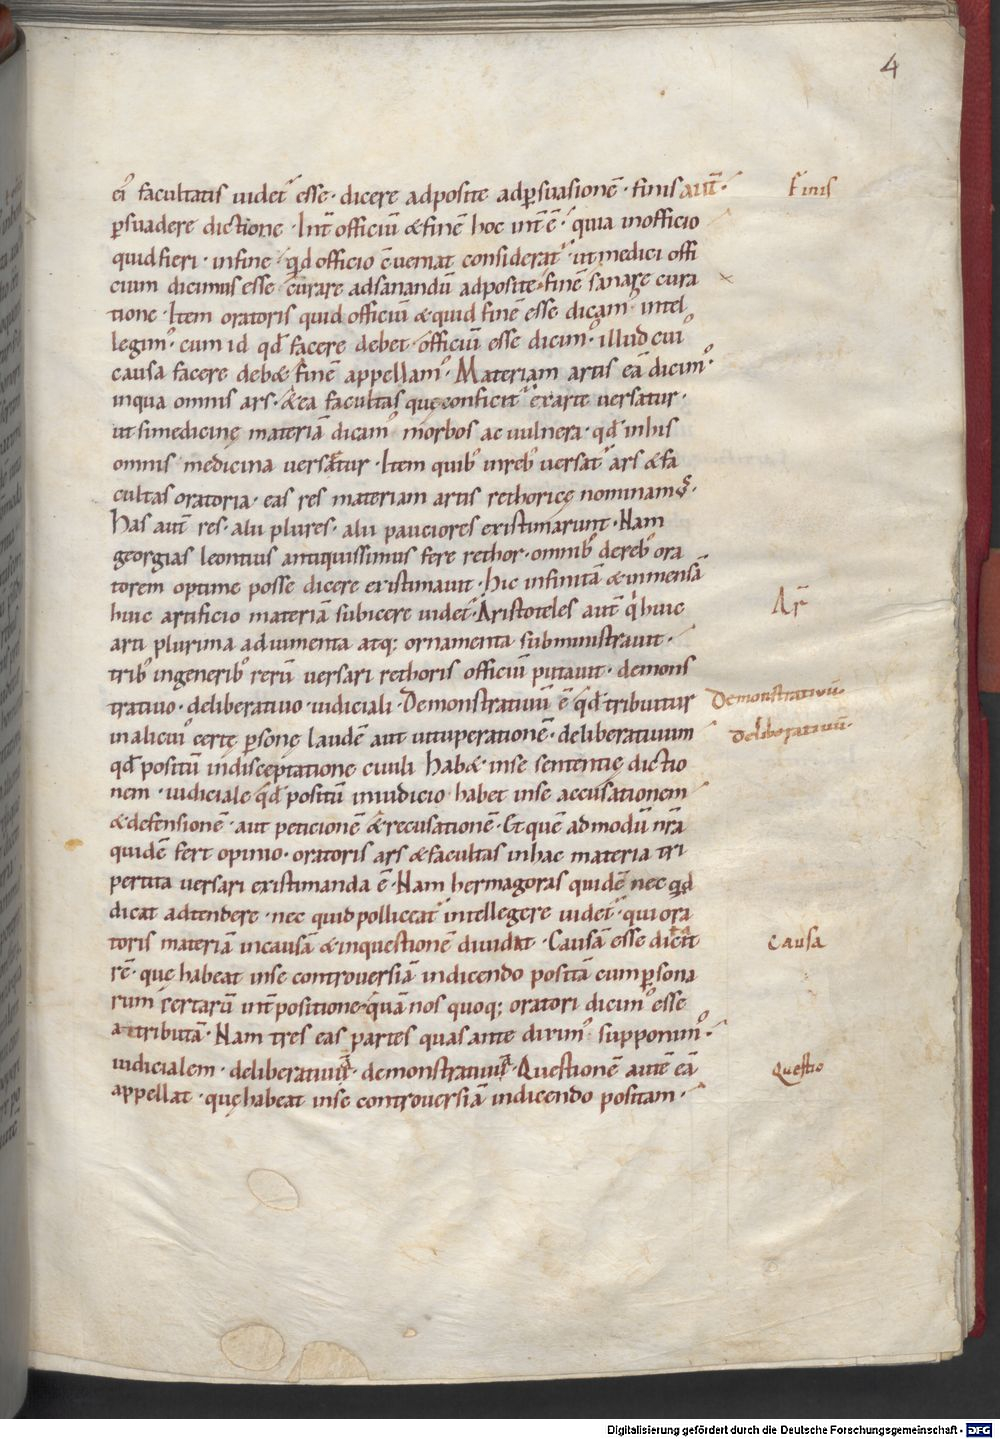 4
ei᾽ facultatis uidet᷑ esse · dicere adposite adꝑsuasionē · finis aut̄ ·
Finis
ꝑsuadere dictione · Int̄ officiū & finē hoc int̄ ē · quia inofficio
quid fieri · infine · qd̄ officio cōueniat considerat᷑ · ut medici offi
cium dicimus esse · curare adsanandū adposite · finē sanare cura
tione · Item oratoris quid officiū & quid finē esse dicam᾽ intel
legim᾽ · cum id qd̄ facere debet · officiū esse dicim᾽ · illud cui᾽
causa facere deb& · finē appellam᾽ · Materiam artis eā dicim᾽ ·
inqua omnis ars · & ea facultas quę conficit᷑ ex arte uersatur ·
ut si medicinę materiā dicam᾽ morbos ac uulnera · qd̄ inhis
omnis medicina uersatur · Item quib᾽ inreb᾽ uersat᷑ ars & fa
cultas oratoria · eas res materiam artis rethoricę nominam᾽ ·
has aut̄ res · alii plures · alii pauciores existimarunt · Nam
georgias leontius antiquissimus fere rethor · omnib᾽ dereb᾽ ora
torem optime posse dicere existimauit · hic infinitā & inmensā
huic artificio materiā subicere uidet᷑ · Aristoteles aut̄ q huic
Ar̄
arti plurima adiumenta atq; ornamenta subministrauit ·
trib᾽ ingenerib᾽ rerū uersari rethoris officiū putauit · demons
tratiuo · deliberatiuo · iudiciali · Demonstratiuū ē qd̄ tribuitur
Demonstratiuū
inalicui᾽ certę ꝑsonę laudē aut uituperationē · deliberatiuum
Deliberatiuū ·
qd̄ positū indisceptatione ciuili hab& · inse sententię dictio
nem · iudiciale qd̄ positū iniudicio habet inse accusationem
& defensionē · aut peticionē & recusationē · Et quē ad modū nr̄a
quidē fert opinio · oratoris ars & facultas inhac materia tri
pertita uersari existimanda ē · Nam hermagoras quidē nec qd̄
dicat adtendere · nec quid polliceat᷑ intellegere uidet᷑ · qui ora
toris materiā incausā & inquestionē diuidit · Causā esse dicit
Causa
rē · quę habeat inse controuersiā indicendo positā cum ꝑsona
rum certarū int̄positione · quā nos quoq; oratori dicim᾽ esse
attributā · Nam tres eas partes quas ante dixim᾽ supponim᾽ ·
iudicialem · deliberatiuā · demonstratiuā · Questionē autē eā
Questio
appellat · quę habeat inse controuersiā indicendo positam ·
Digitalisierung gefördert durch die Deutsche Forschungsgemeinschaft - DFG